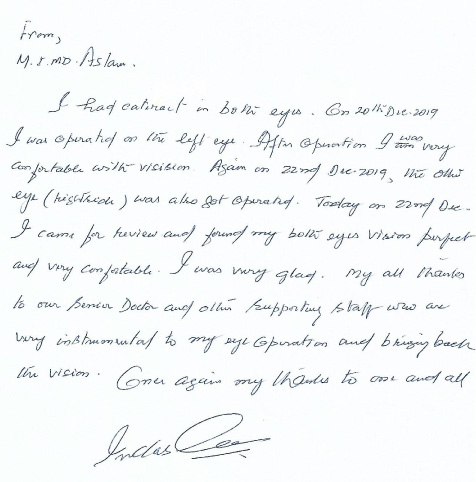 From,
M. S. MD. Aslam.
I had cataract in both eyes. On 20th Dec-2019
I was operated on the left eye. After operation I was very
comfortable with visision Again on 22nd Dec-2019, the other
eye (rightside) was also got operated. Today on 22nd Dec-
I came for review and found my both eyes vision perfect
and very comfortable. I was very glad. My all thanks
to our Senior Doctor and other supporting staff who are
very instrumental to my eye operation and bringing back
the vision. Once again my thanks to one and all